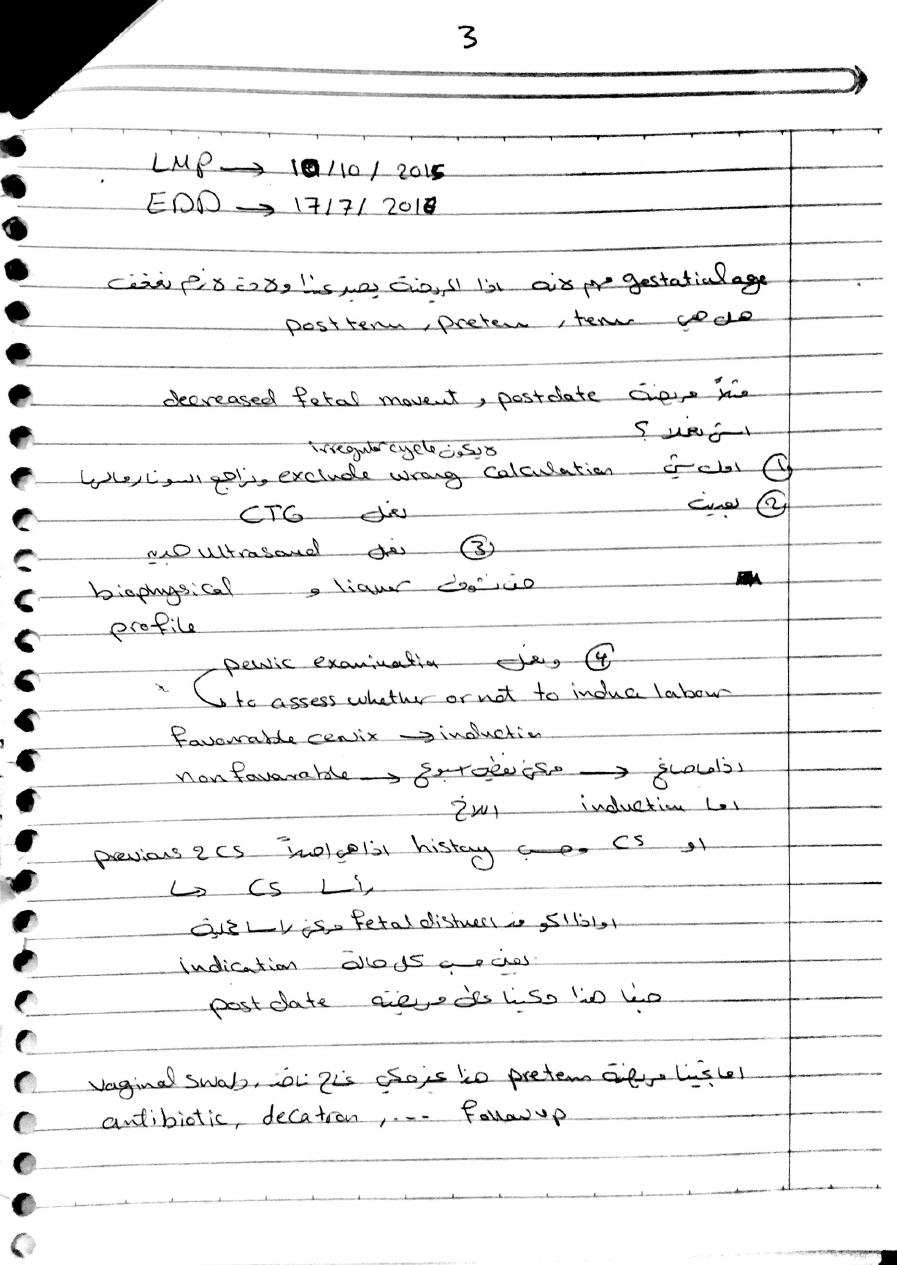 3
LMP → 10/10/2015
EDD → 17/7/2016
gestatioal age مهم لانه اذا المريضة يصير عدنا ولادة لازم نعرف
هل هي term, preterm, post term
مثلاً مريضة postdate و decreased fetal movent
اش نعملا ؟
لا يكون irregular cycle
① اول شي exclude wrong calculation ونراجع السونار مالتها
② بعدين نعمل CTG
③ نعمل ultrasound
حتى نشوف liquor و biophysical
profile
④ ونعمل pelvic examination
to assess whether or not to induce labour
favourable cervix → induction
nonfavorable → ممكن نعطيه اسبوع → اذا ما صاغ
اما induction
او CS حسب history اذا هي اصلاً previous 2 CS
↳ CS رأسا
او اذا اكو fetal distress ممكن راسا
يعني حسب كل حالة indication
طبعا هذا حكينا على مريضة post date
اما تجينا مريضة preterm هنا غير حكي , vaginal swab
antibiotic, decatron, .... Follow up